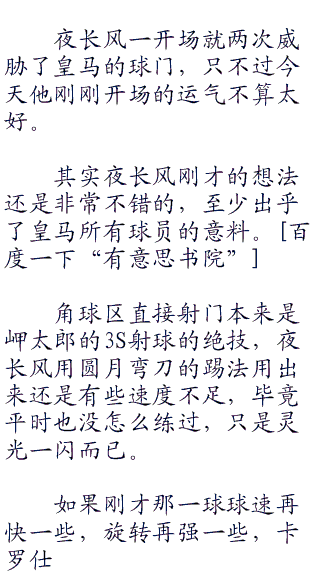 夜长风一开场就两次威
胁了皇马的球门，只不过今
天他刚刚开场的运气不算太
好。
其实夜长风刚才的想法
还是非常不错的，至少出乎
了皇马所有球员的意料。[百
度一下“有意思书院”]
角球区直接射门本来是
岬太郎的3S射球的绝技，夜
长风用圆月弯刀的踢法用出
来还是有些速度不足，毕竟
平时也没怎么练过，只是灵
光一闪而已。
如果刚才那一球球速再
快一些，旋转再强一些，卡
罗仕